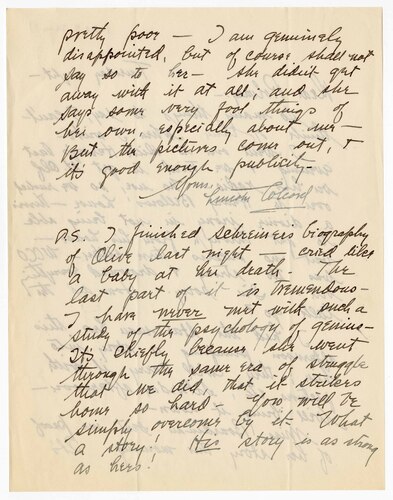 pretty poor — I am genuinely
disappointed, but of course shall not
say so to her — she didn't get
away with it at all; and she
says some very fool things of
her own, especially about me —
But the pictures come out, &
it's good enough publicity.
Yours,
Lincoln Colcord
P.S. I finished Schreiner's biography
of Olive last night — cried like
a baby at her death. The
last part of it is tremendous —
I have never met with such a
study of the psychology of genius —
It's chiefly because she went
through the same era of struggle
that we did, that it strikes
home so hard — You will be
simply overcome by it. What
a story! His story is as strong
as hers!